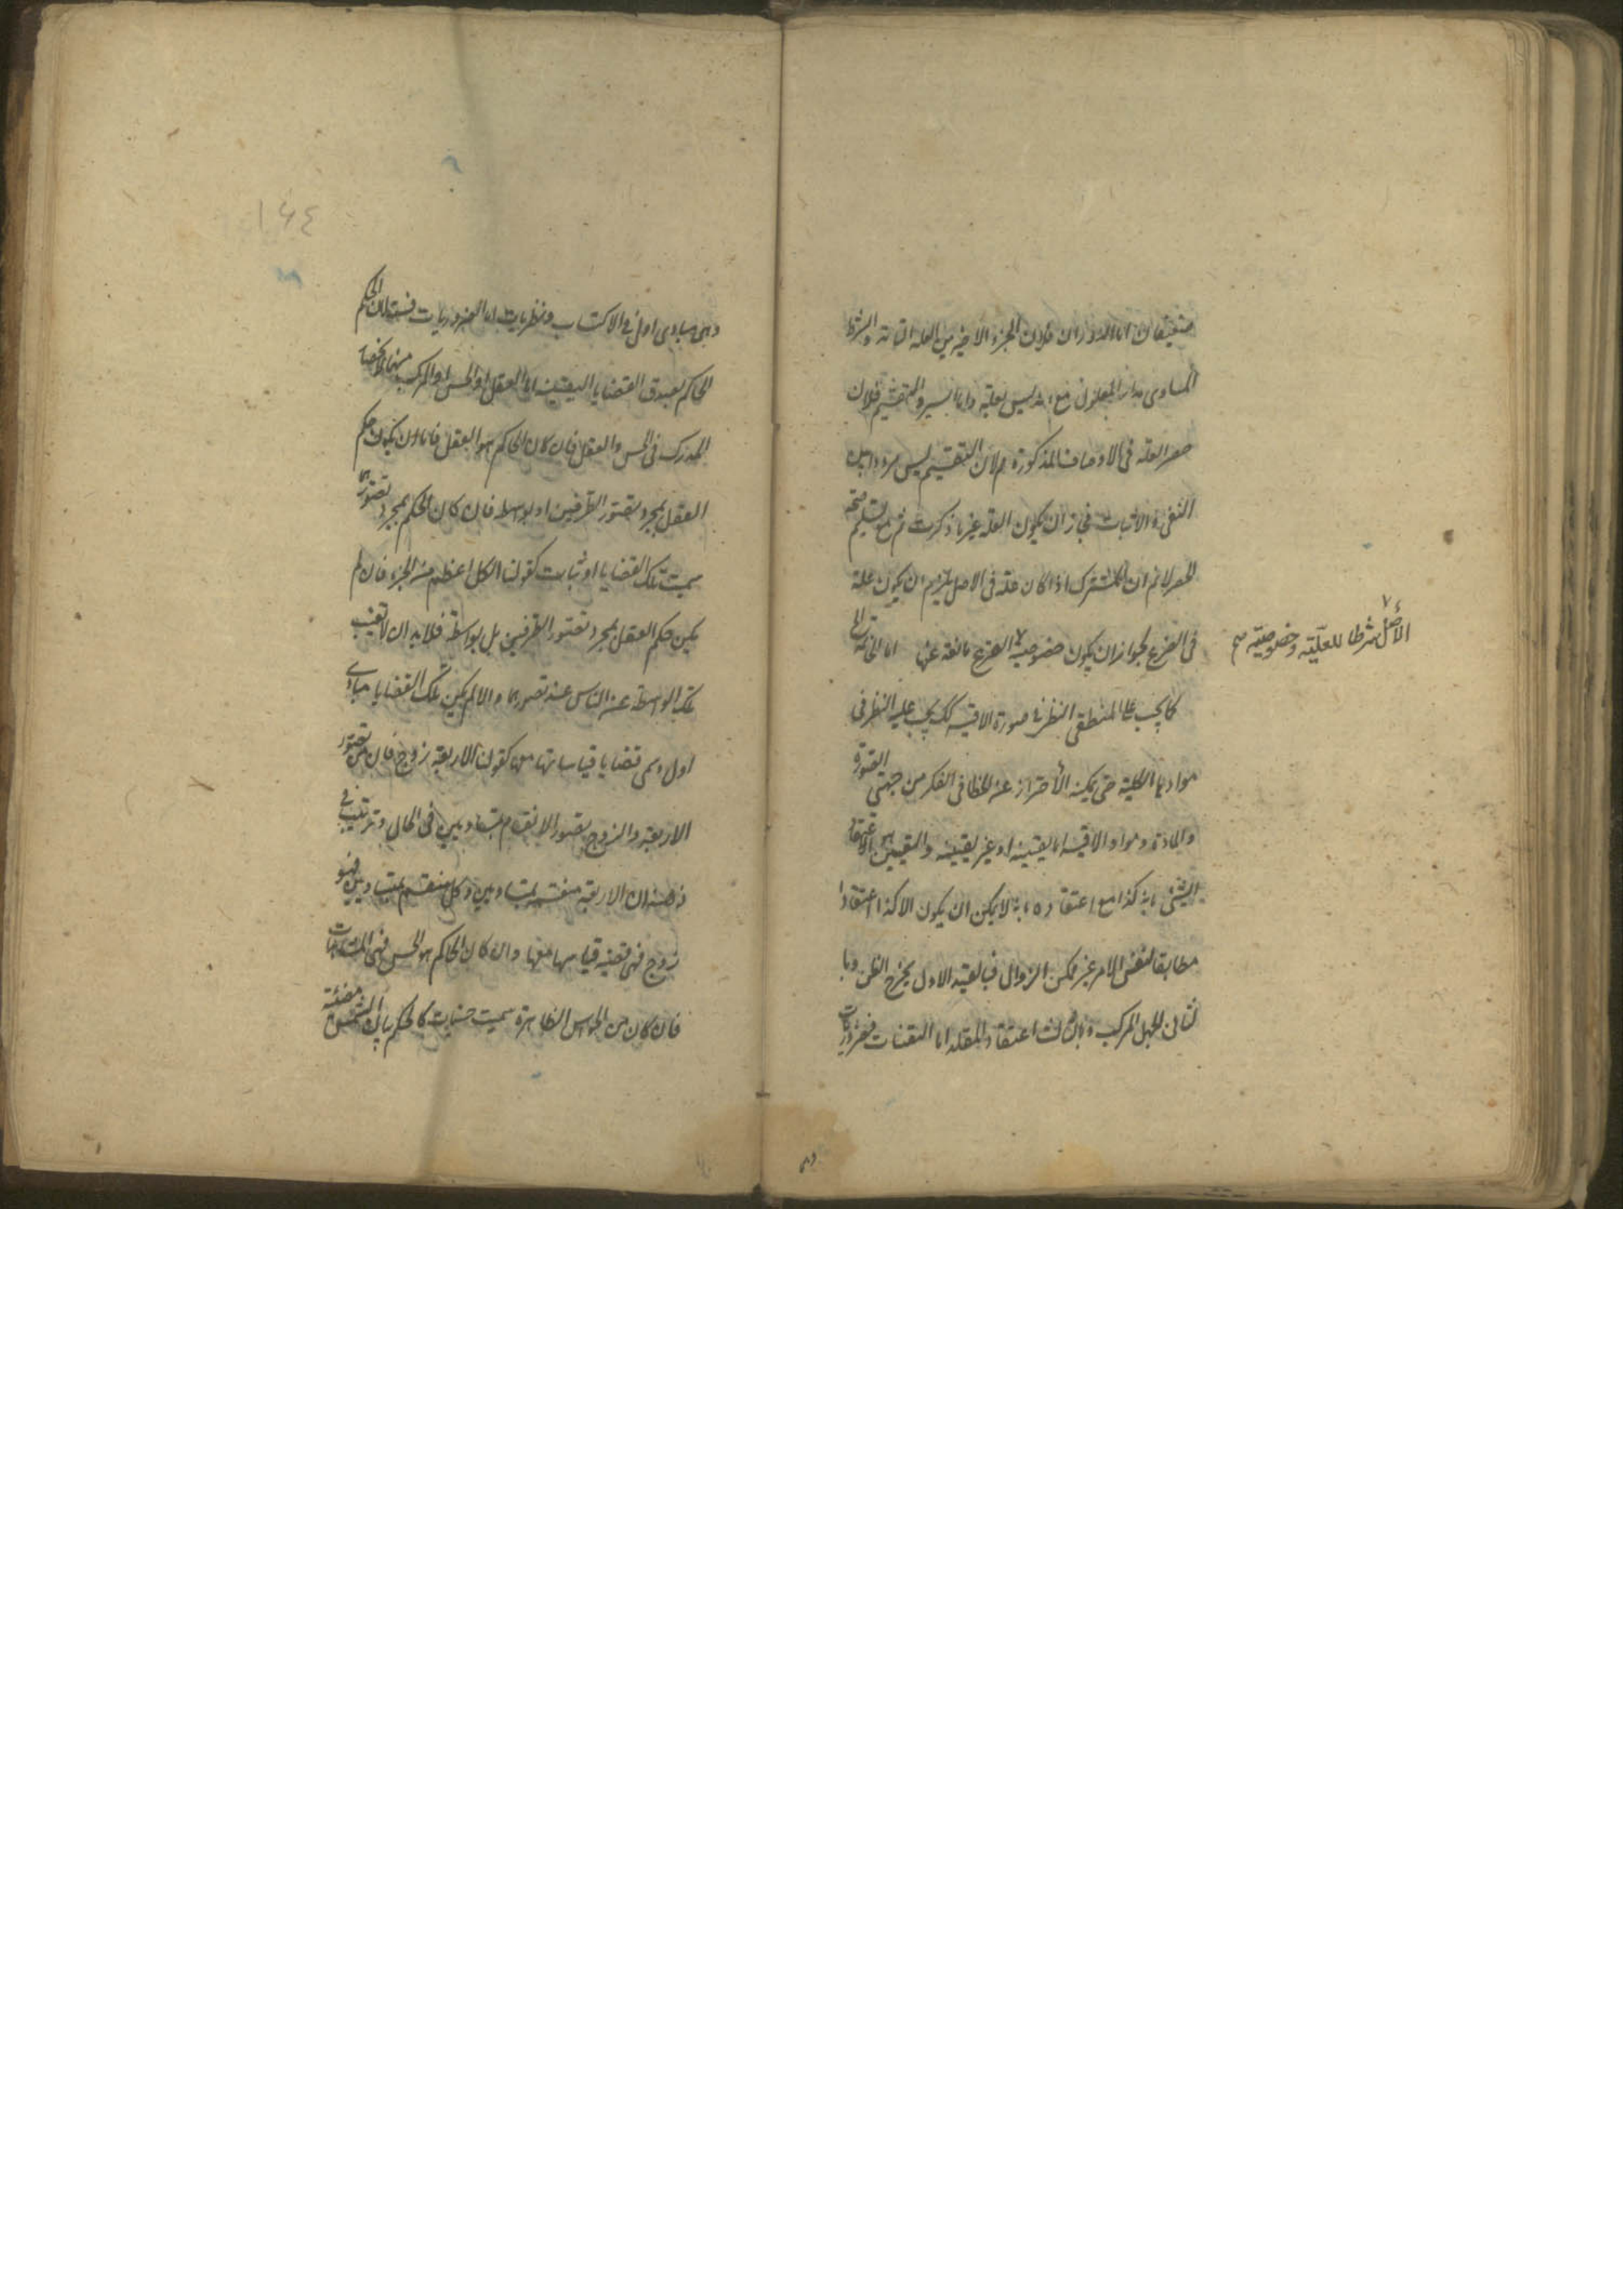 ضعيفان اما الدوران فلان الجزء الاخير من العلة التامة والشرط
المساوى مدار للمعلول مع انه ليس بعلة واما السبر والتقسيم فلان
حصر العلة فى الاوصاف المذكورة مم لان التقسيم ليس مرددا بين
النفى والاثبات فجاز ان يكون العلة غير ما ذكرت ثم مع تسليم صحة
الحصر لانم ان المشترك اذا كان علة فى الاصل يلزم ان يكون علة
فى الفرع لجواز ان يكون خصوصية الفرع مانعة عنها اما الخاتمة
الأصل شرطا للعلّية وخصوصيّة صح
كما يجب على المنطقى النظر فى صورة الاقيسة كك يجب عليه النظر فى
موادها الكلية حتى يمكنه الأحتراز عن الخطا فى الفكر من جهتى الصورة
والمادة ومواد الاقيسة اما يقينية او غير يقينية واليقين هو اعتقاد
الشئ بانه كذا مع اعتقاده بانه لا يمكن ان يكون الا كذا اعتقادا
مطابقا لنفس الامر غير ممكن الزوال فبالقيد الاول يخرج الظن وبا
لثانى الجهل المركب وبالثالث اعتقاد المقلد اما اليقنيات فضروريات
وهى
١٦٤
وهى مبادى اول فى الاكتساب ونظريات اما الضروريات فستة لان الحكم
الحاكم بصدق القضايا اليقينية اما العقل او الحس او المركب منهما لانحصار
المدرك فى الحس والعقل فان كان الحاكم هو العقل فاما ان يكون حكم
العقل بمجرد تصور الطرفين او بواسطة فان كان الحكم بمجرد تصورهما
سميت تلك القضايا اوليات كقولنا الكل اعظم من الجزء فان لم
يكن حكم العقل بمجرد تصور الطرفين بل بواسطة فلابد ان لا تغيب
تلك الواسطة عن الناس عند تصورهما والا لم يكن تلك القضايا مبادى
اول وسمى قضايا قياساتها معها كقولنا الاربعة زوج فان من تصور
الاربعة والزوج تصور الانقسام بمتساويين فى الحال وترتب فى
ذهنه ان الاربعة منقسمة بمتساويين وكل منقسم بمتساويين فهو
زوج فهى قضية قياسها معها وان كان الحاكم هو الحس فهى المشاهدات
فان كان من الحواس الظاهرة سميت حسيات كالحكم بان الشمس مضيئة